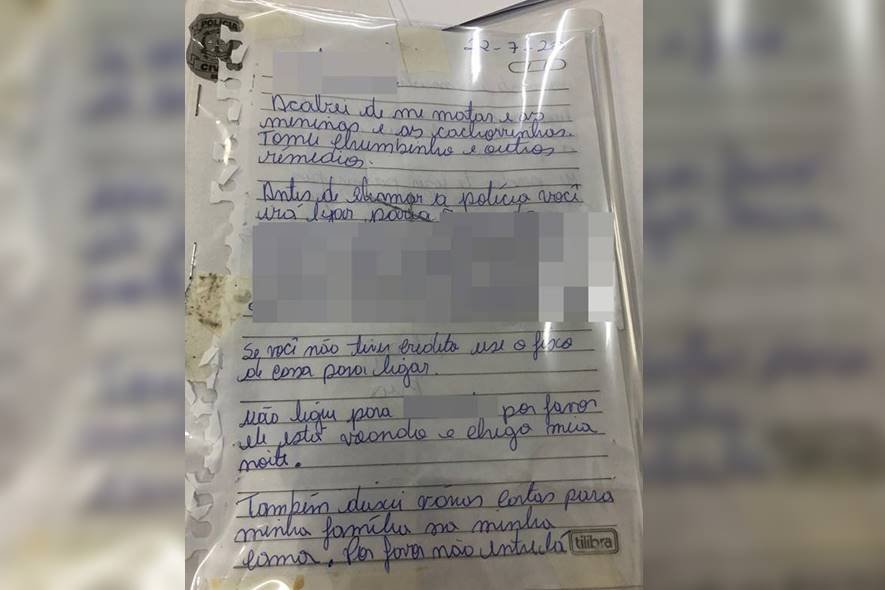 POLÍCIA
CIVIL
22-7-20
Acabei de me matar e as
meninas e as cachorrinhas.
Tomei chumbinho e outros
remédios.
Antes de chamar a polícia você
irá ligar para
Se você não tiver credito use o fixo
de casa para ligar.
Não ligue para por favor
ele está voando e chega meia
noite.
Também deixei várias cartas para
minha família na minha
cama. Por favor não entre lá
tilibra